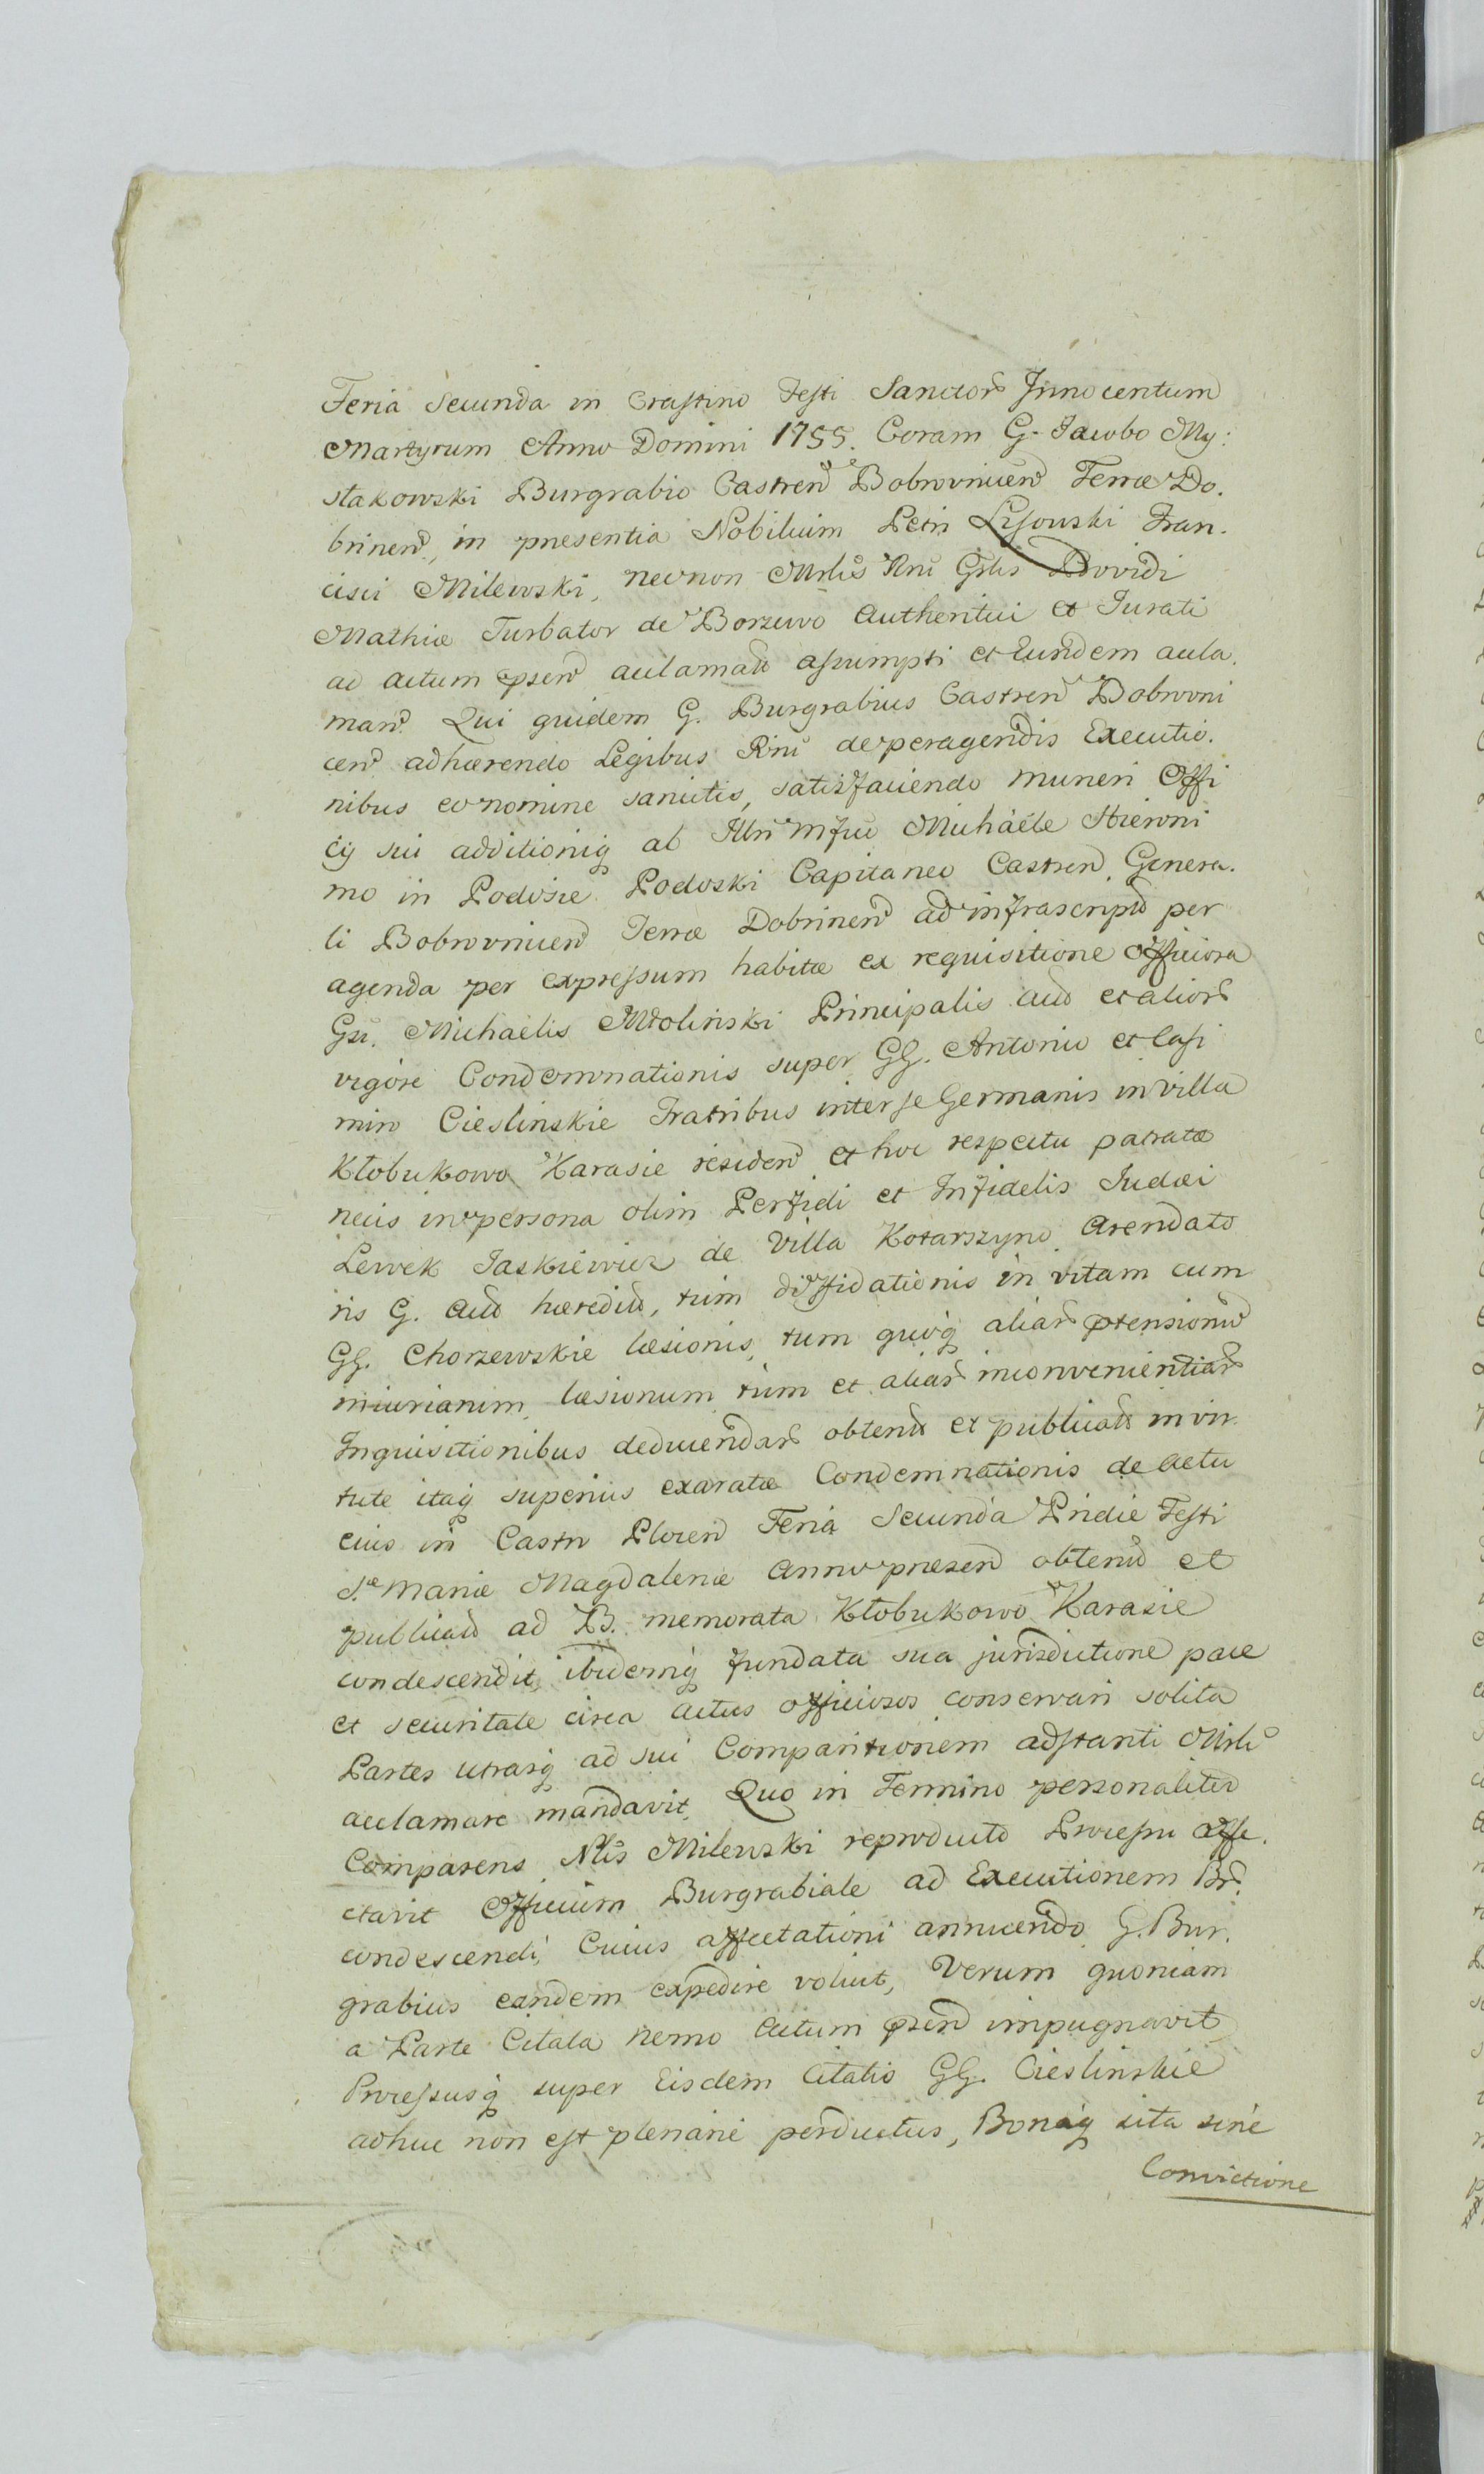 Feria Secunda in Crastino Festi Sanctor Innocentum
Martyrum Anno Domini 1755. Coram G. Jacobo My:
stakowski Burgrabio Castren Bobrovnicen Terræ Do.
brinen, in presentia Nobilium Petri Lisowski Fran.
cisci Milewski, necnon Mrlis Rni Gnlis Providi
Mathiæ Turbator de Borzewo Authentici et Jurati
ad actum psen aclamati assumpti et Eundem acla.
man. Qui quidem G. Burgrabius Castren Bobrovni
cen adhærendo Legibus Rni de peragendis Executio.
nibus eo nomine sancitis, satisfaciendo muneri Offi
cij sui additioniq ab Illri Mfco Michaële Hieroni
mo in Podosie Podoski Capitaneo Castren. Genera.
li Bobrovnicen Terræ Dobrinen ad infrascripta per
agenda per expressum habitæ ex requisitione officiosa
Gsi. Michaëlis Mdolinski Principalis act et alior
vigore Condemnationis super GG. Antonio et Casi
miro Cieslinskie Fratribus inter se Germanis in villa
Kłobukowo Karasie residen et hoc respectu patratæ
necis in persona olim Perfidi et Infidelis Judæi
Lewek Jaskiewicz de Villa Kotarszyno Arendato
ris G. act hæredit, tum diffidationis in vitam cum
GG. Chorzewskie læsionis, tum quoq aliar ptensionu
iniuriarum, læsionum tum et aliar inconvenientiar
Inquisitionibus deducendar obtent et publicat in vir
tute itaq superius exaratæ Condemnationis de actu
eius in Castro Plocen Feria Secunda Pridie Festi
S.æ Mariæ Magdalenæ Anno præsen obtent et
publicat ad B. memorata Kłobukowo Karasie
condescendit, ibidemq fundata sua jurisdictione pace
et securitate circa actus officiosos conservari solita
Partes utrasq ad sui Comparitionem adstanti Mrli
acclamare mandavit. Quo in Termino personaliter
Comparens Nlis Milewski reproducto Processu affe.
ctavit Officium Burgrabiale ad Executionem Br.
condescendi, Cuius affectationi annuendo G. Bur.
grabius eandem expedire voluit, Verum quoniam
a Parte Citata nemo Actum psen impugnavit
Processusq super Eisdem Citatis GG. Cieslinskie
adhuc non est plenarie perductus, Bonaq sita sine
Convictione